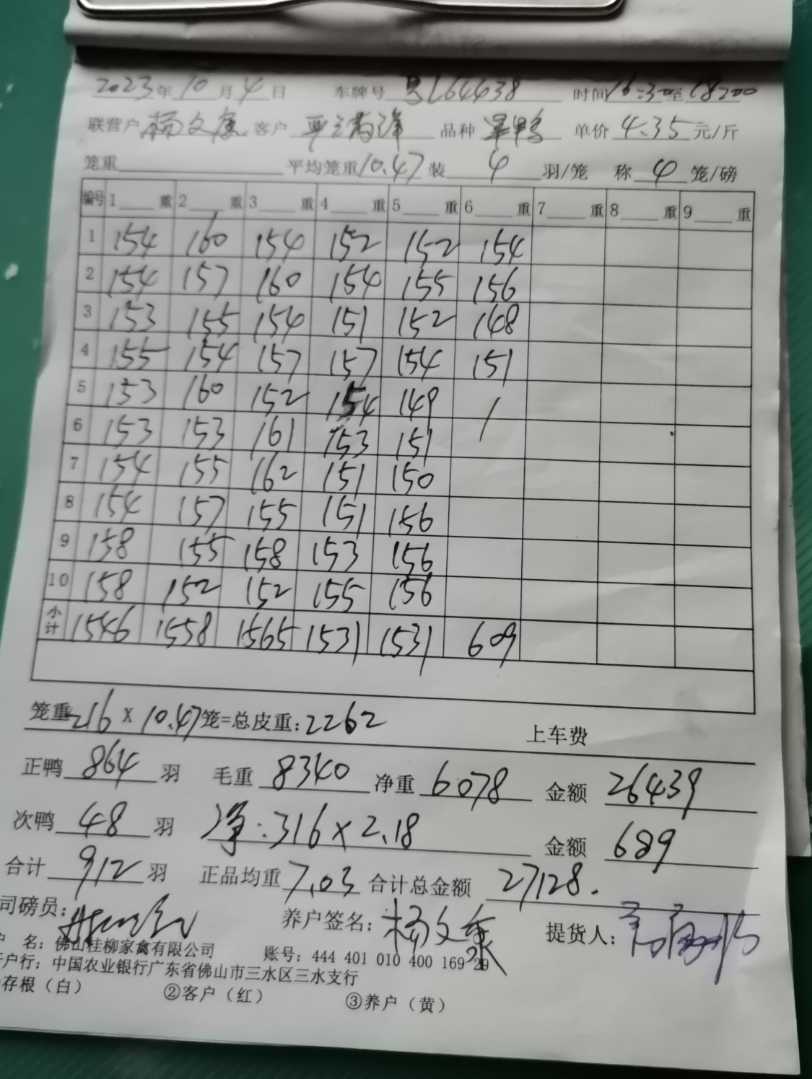 2023年10月4日 车牌号 粤L64438 时间16:30至18:00
联营户 杨文 客户 品种 鸭 单价 4.35 元/斤
笼重 平均笼重10.47 装 4 羽/笼 称 4 笼/磅
编号 1 重 2 重 3 重 4 重 5 重 6 重 7 重 8 重 9 重
1 154 160 154 152 152 154
2 154 157 160 154 155 156
3 153 155 154 151 152 148
4 155 154 157 157 154 151
5 153 160 152 154 149 /
6 153 153 161 153 151
7 154 155 162 151 150
8 154 157 155 151 156
9 158 155 158 153 156
10 158 152 152 155 156
小计 1546 1558 1565 1531 1531 609
笼重216 X 10.47笼=总皮重:2262 上车费
正鸭 864 羽 毛重 8340 净重 6078 金额 26439
次鸭 48 羽 净:316×2.18 金额 689
合计 912 羽 正品均重 7.03 合计总金额 27128.
司磅员: 养户签名: 杨文 提货人:
户 名: 佛山桂柳家禽有限公司 账号: 444 401 010 400 169 29
户行: 中国农业银行广东省佛山市三水区三水支行
存根（白） ②客户（红） ③养户（黄）